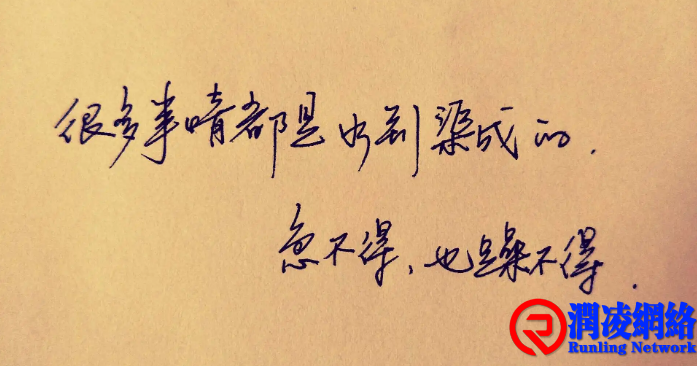 很多事情都是水到渠成的.
急不得,也躁不得.
潤凌網絡
Runling Network